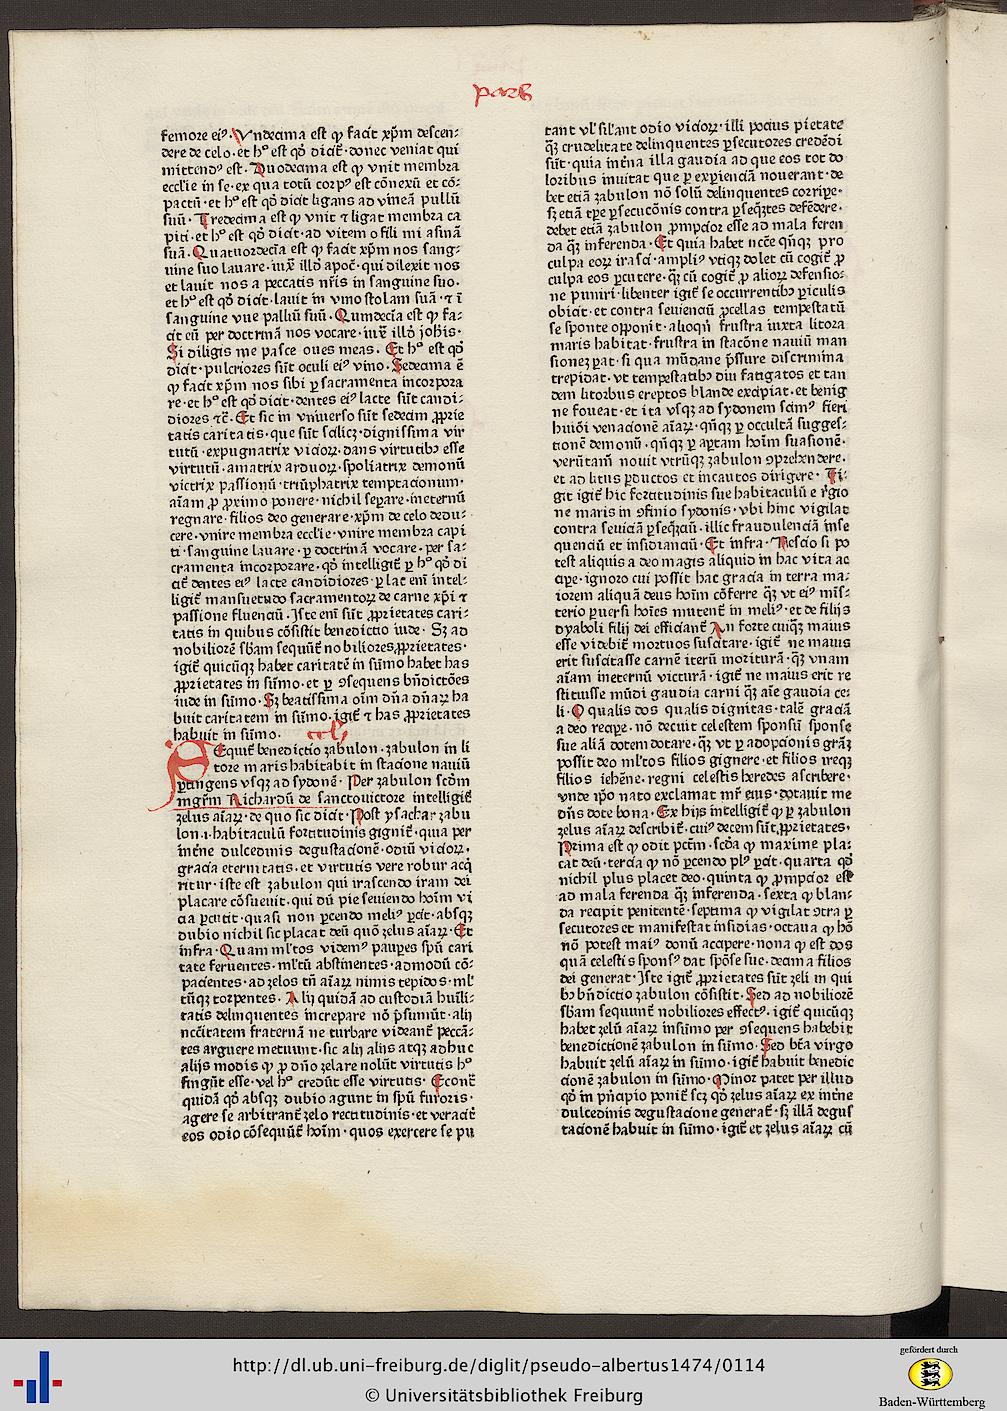 pars
femore ei⁹. Vndecima est ꝙ facit xp̄m descen-
dere de celo. et h° est qd̓ dicit̄. donec veniat qui
mittend⁹ est. Duodecima est ꝙ vnit membra
eccl̓ie in se. ex qua totū corp⁹ est cōnexū et cō-
pactū. et h° est qd̓ dicit ligans ad vineā pullū
suū. Tredecima est ꝙ vnit ⁊ ligat membra ca
piti. et h° est qd̓ dicit. ad vitem o fili mi asinā
suā. Quatuordecīa est ꝙ facit xp̄m nos sang-
uine suo lauare. iux̄ illd̓ apoc̄. qui dilexit nos
et lauit nos a peccatis nr̄is in sanguine suo.
et h° est qd̓ dicit. lauit in vino stolam suā. ⁊ ī
sanguine vue palliū suū. Quindecīa est ꝙ fa-
cit eū per doctrinā nos vocare. iux̄ illd̓ joh̄is.
Si diligis me pasce oues meas. Et h° est qd̓
dicit. pulcriores sūt oculi ei⁹ vino. Sedecima ē
ꝙ facit xp̄m nos sibi ꝑ sacramenta incorpora
re. et h° est qd̓ dicit. dentes ei⁹ lacte sūt candi-
diores ⁊c̄. Et sic in vniuerso sūt sedecim ꝓprie
tatis caritatis. que sūt scilicꝫ. dignissima vir
tutū. expugnatrix vicioꝝ. dans virtutibꝫ esse
virtutū. amatrix arduoꝝ. spoliatrix demonū
victrix passionū. triūphatrix temptacionum.
aīam ꝓ ꝓximo ponere. nichil seꝑare. ineternū
regnare. filios deo generare. xp̄m de celo dedu-
cere. vnire membra eccl̓ie. vnire membra capi
ti. sanguine lauare. ꝑ doctrinā vocare. per sa-
cramenta incorporare. qd̓ intelligit̄ ꝑ h° qd̓ di
cit̄ dentes ei⁹ lacte candidiores. ꝑ lac eni̅ intel-
ligit̄ mansuetudo sacramentoꝝ de carne xp̄i ⁊
passione fluenciū. Iste eni̅ sūt ꝓprietates cari-
tatis in quibus cōsistit benedictio iude. Sꝫ ad
nobiliorē sb̄am sequūt̄ nobiliores ꝓprietates.
igit̄ quicūqꝫ habet caritatē in sūmo habet has
ꝓprietates in sūmo. et ꝑ ꝯsequens bn̄dictōes
iude in sūmo. Sꝫ beatissima oīm dn̄a dn̄aꝝ ha
buit caritatem in sūmo. igit̄ ⁊ has ꝓprietates
habuit in sūmo.
SEquit̄ benedictio zabulon. zabulon in li
tore maris habitabit in stacione nauiū
ꝑtingens vsqꝫ ad sydonē. Per zabulon scd̓m
mgr̄m Richardū de sanctouictore intelligit̄
zelus aīaꝝ. de quo sic dicit. Post ysachar zabu
lon .i. habitaculū fortitudinis gignit̄. quia per
int̄ne dulcedinis degustacionē. odiū vicioꝝ.
gracia eternitatis. et virtutis vere robur acq̄
ritur. iste est zabulon qui irascendo iram dei
placare cōsueuit. qui dū pie seuiendo hoīm vi
cia ꝑcutit. quasi non ꝑcendo meli⁹ ꝑcit. absqꝫ
dubio nichil sic placat deū quō zelus aīaꝝ. Et
infra. Quam ml̓tos videm⁹ pauꝑes spū cari
tate feruentes. ml̓tū abstinentes. admodū cō-
pacientes. ad zelos tn̄ aīaꝝ nimis tepidos. ml̓
tūqꝫ torpentes. Alij quidā ad custodiā huīli-
tatis delinquentes increpare nō p̄sumūt. alij
nccītatem fraternā ne turbare videant̄ peccā-
tes arguere metuunt. sic alij alijs atqꝫ adhuc
alijs modis ꝙ ꝓ dn̄o zelare nolūt virtutis h°
fingūt esse. vel h° credūt esse virtutis. Econt̄
quidā qd̓ absqꝫ dubio agunt in spū furoris.
agere se arbitrant̄ zelo rectitudinis. et veracit̄
eos odio cōsequūt̄ hoīm. quos exercere se pu
tant vl̓ sil̓ant odio vicioꝝ. illi pocius pietate
qꝫ crudelitate delinquentes ꝑsecutores credēdi
sūt. quia int̄na illa gaudia ad que eos tot do
loribus inuitat que ꝑ exꝑienciā nouerant. de
bet etiā zabulon nō solū delinquentes corripe.
sꝫ etiā tp̄e ꝑsecucōnis contra ꝑseq̄ntes defēdere.
debet etiā zabulon ꝓmpcior esse ad mala feren
da qꝫ inferenda. Et quia habet nccē qn̄qꝫ pro
culpa eoꝝ irasci. ampli⁹ vtiqꝫ dolet cū cogit̄ ꝓ
culpa eos ꝑcutere. qꝫ cū cogit̄ ꝓ alioꝝ defensio-
ne puniri. libenter igit̄ se occurrentibꝫ ꝑiculis
obicit. et contra seuienciū ꝓcellas tempestatū
se sponte opponit. alioqn̄ frustra iuxta litora
maris habitat. frustra in stacōne nauiū man
sionez ꝑat. si qua mūdane p̄ssure discrimina
trepidat. vt tempestatibꝫ diu fatigatos et tan
dem litoribus ereptos blande excipiat. et benig
ne foueat. et ita vsqꝫ ad sydonem scim⁹ fieri
hui⁹ōi venacionē aīaꝝ. qn̄qꝫ ꝑ occultā sugges-
tionē demonū. qn̄qꝫ ꝑ aꝑtam hoīm suasionē.
verūtam̄ nouit vtrūqꝫ zabulon ꝯprehendere.
et ad litus ꝑductos et incautos dirigere. Fi-
git igit̄ hic fortitudinis sue habitaculū e r̓gio
ne maris in ꝯfinio sydonis. vbi hinc vigilat
contra seuiciā ꝑseq̄nciū. illic fraudulenciā inse
quenciū et insidianciū. Et infra. Nescio si po
test aliquis a deo magis aliquid in hac vita ac
cipe. ignoro cui possit hac gracia in terra ma-
iorem aliquā deus hoīm cōferre qꝫ vt ei⁹ mīs-
terio ꝑuersi hoīes mutent̄ in meli⁹. et de filijs
dyaboli filij dei efficiant̄ An forte cuiqꝫ maius
esse videbit̄ mortuos suscitare. igit̄ ne maius
erit suscitasse carnē iterū moriturā. qꝫ vnam
aīam ineternū victurā. igit̄ ne maius erit re
stituisse mūdi gaudia carni qꝫ aīe gaudia ce-
li. O qualis dos qualis dignitas. talē graciā
a deo recipe. nō decuit celestem sponsū sponse
sue aliā dotem dotare. qꝫ vt ꝑ adopcionis gr̄az
possit deo ml̓tos filios gignere. et filios ireqꝫ
filios iehēne. regni celestis heredes ascribere.
vnde ip̄o nato exclamat mr̄ eius. dotauit me
dn̄s dote bona. Ex hijs intelligit̄ ꝙ ꝑ zabulon
zelus aīaꝝ describit̄. cui⁹ decem sūt ꝓprietates.
Prima est ꝙ odit pctm̄. scd̓a ꝙ maxime pla-
cat deū. tercia ꝙ nō ꝑcendo pl⁹ ꝑcit. quarta qd̓
nichil plus placet deo. quinta ꝙ ꝓmpcior est
ad mala ferenda qꝫ inferenda. sexta ꝙ blan-
da recipit penitentē. septima ꝙ vigilat ꝯtra ꝑ
secutores et manifestat insidias. octaua ꝙ hō
nō potest mai⁹ donū accipere. nona ꝙ est dos
quā celestis spons⁹ dat spōse sue. decima filios
dei generat. Iste igit̄ ꝓprietates sūt zeli in qui
bꝫ bn̄dictio zabulon cōsistit. Sed ad nobiliorē
sb̄am sequunt̄ nobiliores effect⁹. igit̄ quicūqꝫ
habet zelū aīaꝝ insūmo per ꝯsequens habebit
benedictionē zabulon in sūmo. Sed bt̄a virgo
habuit zelū aīaꝝ in sūmo. igit̄ habuit benedic
cionē zabulon in sūmo. Minor patet per illud
qd̓ in pn̄cipio ponit̄ scꝫ qd̓ zelus aīaꝝ ex int̄ne
dulcedinis degustacione generat̄. sꝫ illā degus
tacionē habuit in sūmo. igit̄ et zelus aīaꝝ cū
http://dl.ub.uni-freiburg.de/diglit/pseudo-albertus1474/0114
© Universitätsbibliothek Freiburg
gefördert durch
Baden-Württemberg